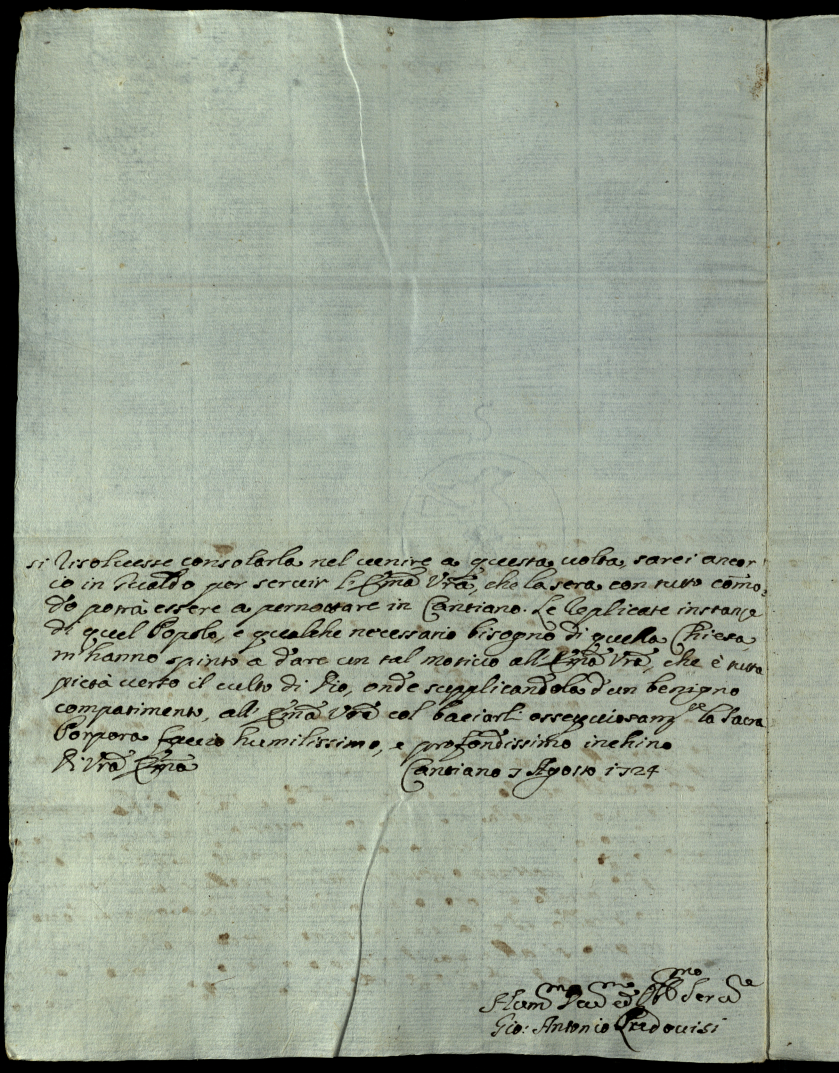 si risoluesse consolarla nel uenire a questa uolta, sarei ancor
io in Gualdo per seruir l'Em̃a Vrã, che la sera con tutto com̃o=
do potrà essere a pernottare in Cantiano. Le replicate instanze
di quel Popolo, e qualche necessario bisogno di quella Chiesa,
m'hanno spinto a dare un tal motiuo all'Em̃a Vrã, che è tutta
pietà uerso il culto di Dio, onde supplicandola d'un benigno
compatimento, all'Em̃a Vrã col baciarli ossequiosamte la Sacra
Porpora faccio humilissimo, e profondissimo inchino
Di Vrã Em̃a Cantiano 7 Agosto 1724
Hummo Deumo ed Obbmo Serure
Gio: Antonio